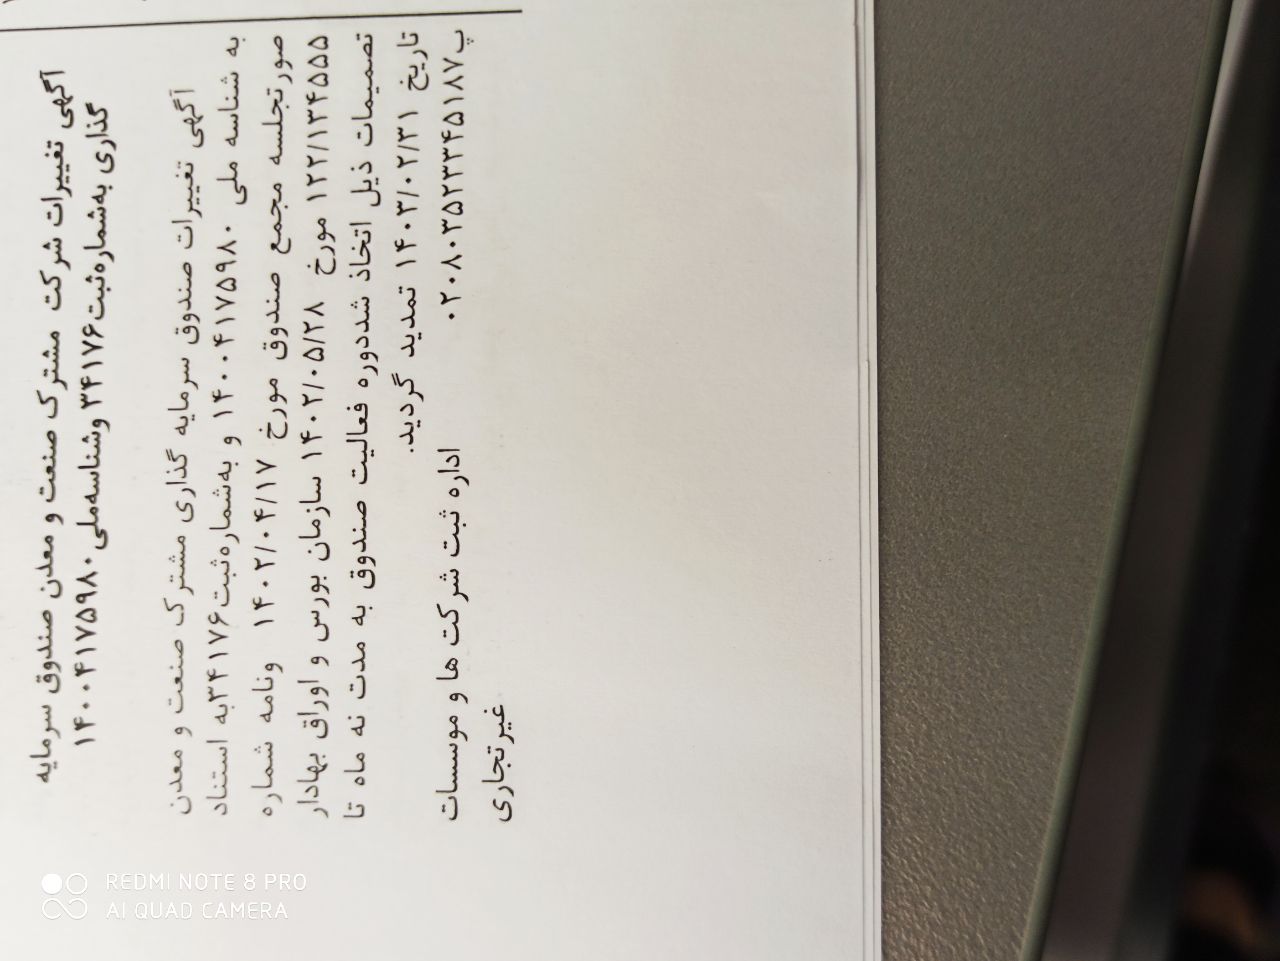 آگهی تغییرات شرکت مشترک صنعت و معدن صندوق سرمایه
گذاری به‌شماره‌ثبت۳۴۱۷۶ وشناسه‌ملی۱۴۰۰۴۱۷۵۹۸۰
آگهی تغییرات صندوق سرمایه گذاری مشترک صنعت و معدن
به شناسه ملی ۱۴۰۰۴۱۷۵۹۸۰ و به‌شماره‌ثبت۳۴۱۷۶به استناد
صورتجلسه مجمع صندوق مورخ ۱۴۰۲/۰۴/۱۷ ونامه شماره
۱۲۲/۱۳۴۵۵۵ مورخ ۱۴۰۲/۰۵/۲۸ سازمان بورس و اوراق بهادار
تصمیمات ذیل اتخاذ شددوره فعالیت صندوق به مدت نه ماه تا
تاریخ ۱۴۰۳/۰۲/۳۱ تمدید گردید.
پ۰۲۰۸۰۳۵۲۳۳۴۵۱۸۷ اداره ثبت شرکت ها و موسسات
غیرتجاری
REDMI NOTE 8 PRO
AI QUAD CAMERA